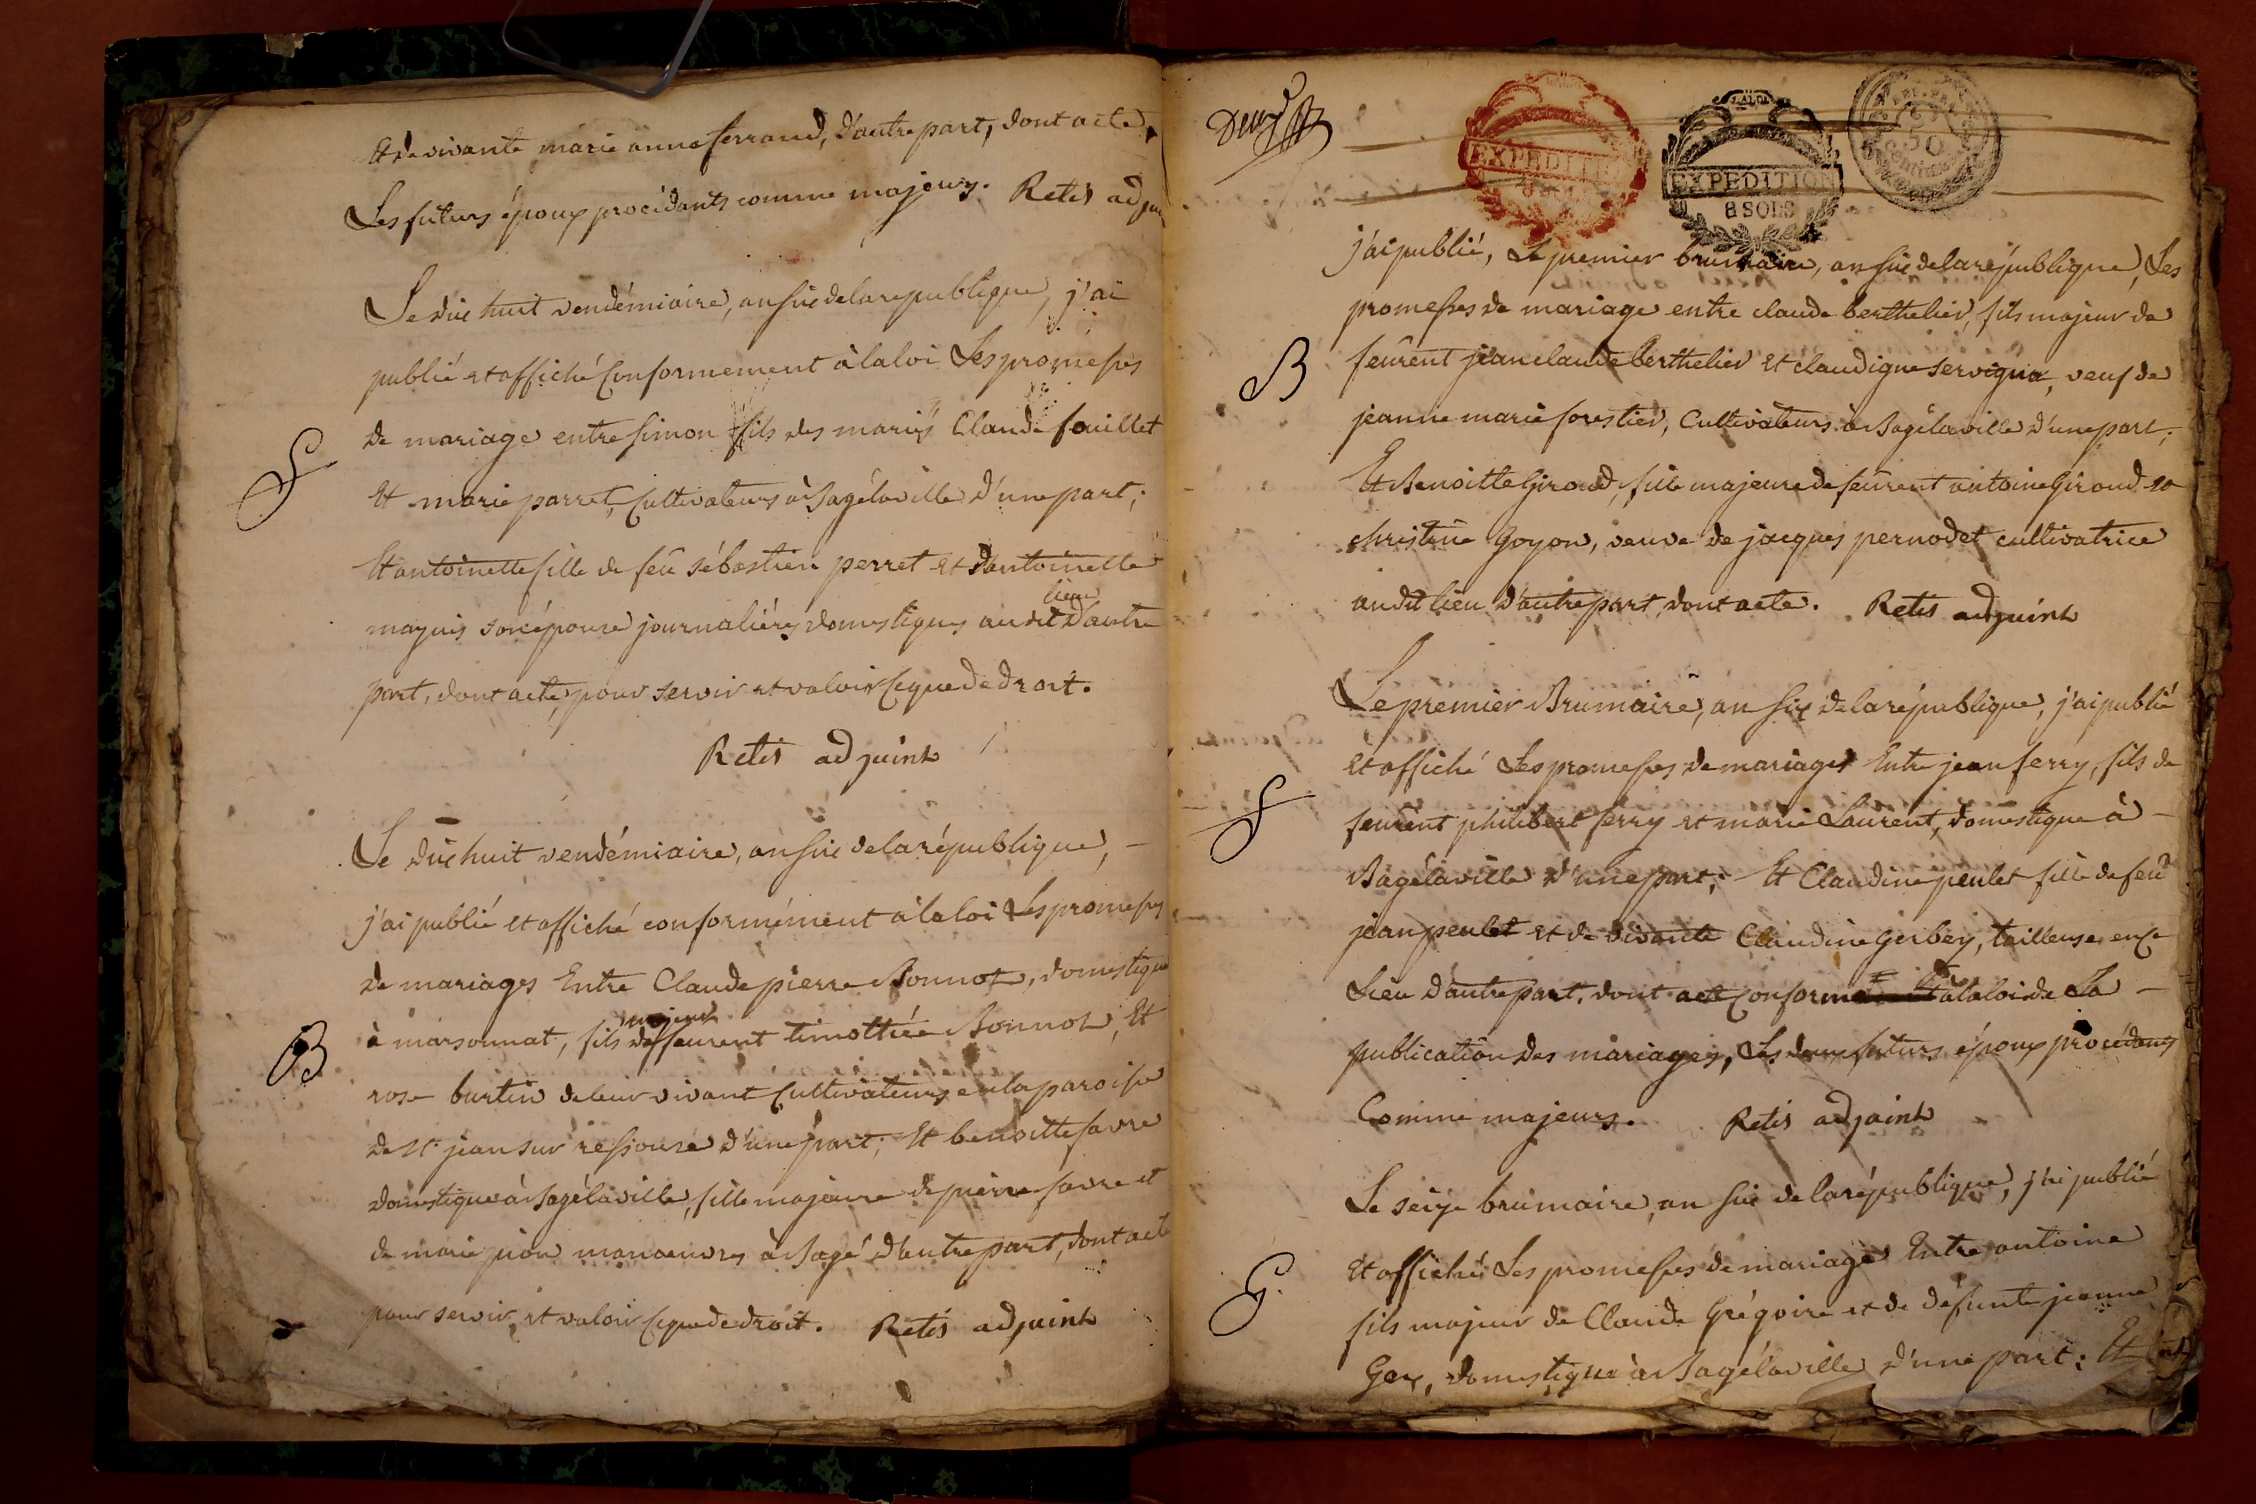 Et de vivante marie anne ferrand, d'autre part, dont acte,
Les futurs époux procédants comme majeurs. Retis adjoint
Le dix huit vendémiaire, an six de la republique, j'ai
publié et affiché Conformement à la loi Les promesses
de mariage entre simon fils des mariés Claude fouillet
f
Et marie parret, Cultivateurs à Bagélaville d'une part;
Et antoinette fille de feu sébastien perret et d'antoinette
lieu
mayuis son épouse journaliérs domestiques audit d'autre
part, dont acte, pour servir et valoir Ce que de droit.
Retis adjoint
Le dix huit vendémiaire, an six de la république,
j'ai publié et affiché conformément à la loi Les promesses
de mariages Entre Claude pierre Bonnot, domestique
majeur
à marsonnat, fils de feurent timottée Bonnot, Et
B
rose burtin de leur vivant Cultivateurs en la paroisse
de St. jean sur ressouse d'une part; Et benoitte favre
domestique à Bagélaville, fille majeure de pierre favre et
de marie pion manoeuvres à Bagé d'autre part, dont acte
pour servir, et valoir Ce que de droit. Retis adjoint
Deux
EXPEDITION
EXPEDITION
8 SOLS
50
centimes
j'ai publié, Le premier brumaire, an six de la république, Les
promesses de mariage entre claude berthelier, fils majeur de
B
feurent jean claude berthelier et claudigne servigna, veuf de
jeanne marie forestier, Cultivateurs à Bagélaville d'une part;
Et Benoitte Giroud, fille majeure de feurent antoine Giroud et
christine Goyon, veuve de jacques pernodet cultivatrice
audit lieu d'autre part, dont acte. Retis adjoint
Le premier Brumaire, an six de la république, j'ai publié
et affiché Les promesses de mariages Entre jean ferry, fils de
f
feurent philibert ferry et marie Laurent, domestique à
Bagélaville d'une part; Et Claudine peulet fille de feu
jean peulet et de vivante Claudine Gerbey, tailleuse en ce
Lieu d'autre part, dont acte Conforme à la loi de La
publication des mariages, Les deux futurs époux procédans
Comme majeurs. Retis adjoint
Le seize brumaire, an six de la république, j'ai publié
et affiché Les promesses de mariage Entre antoine
G.
fils majeur de Claude Grégoire et de defunte jeanne
Gex, domestique à Bagélaville d'une part: Et